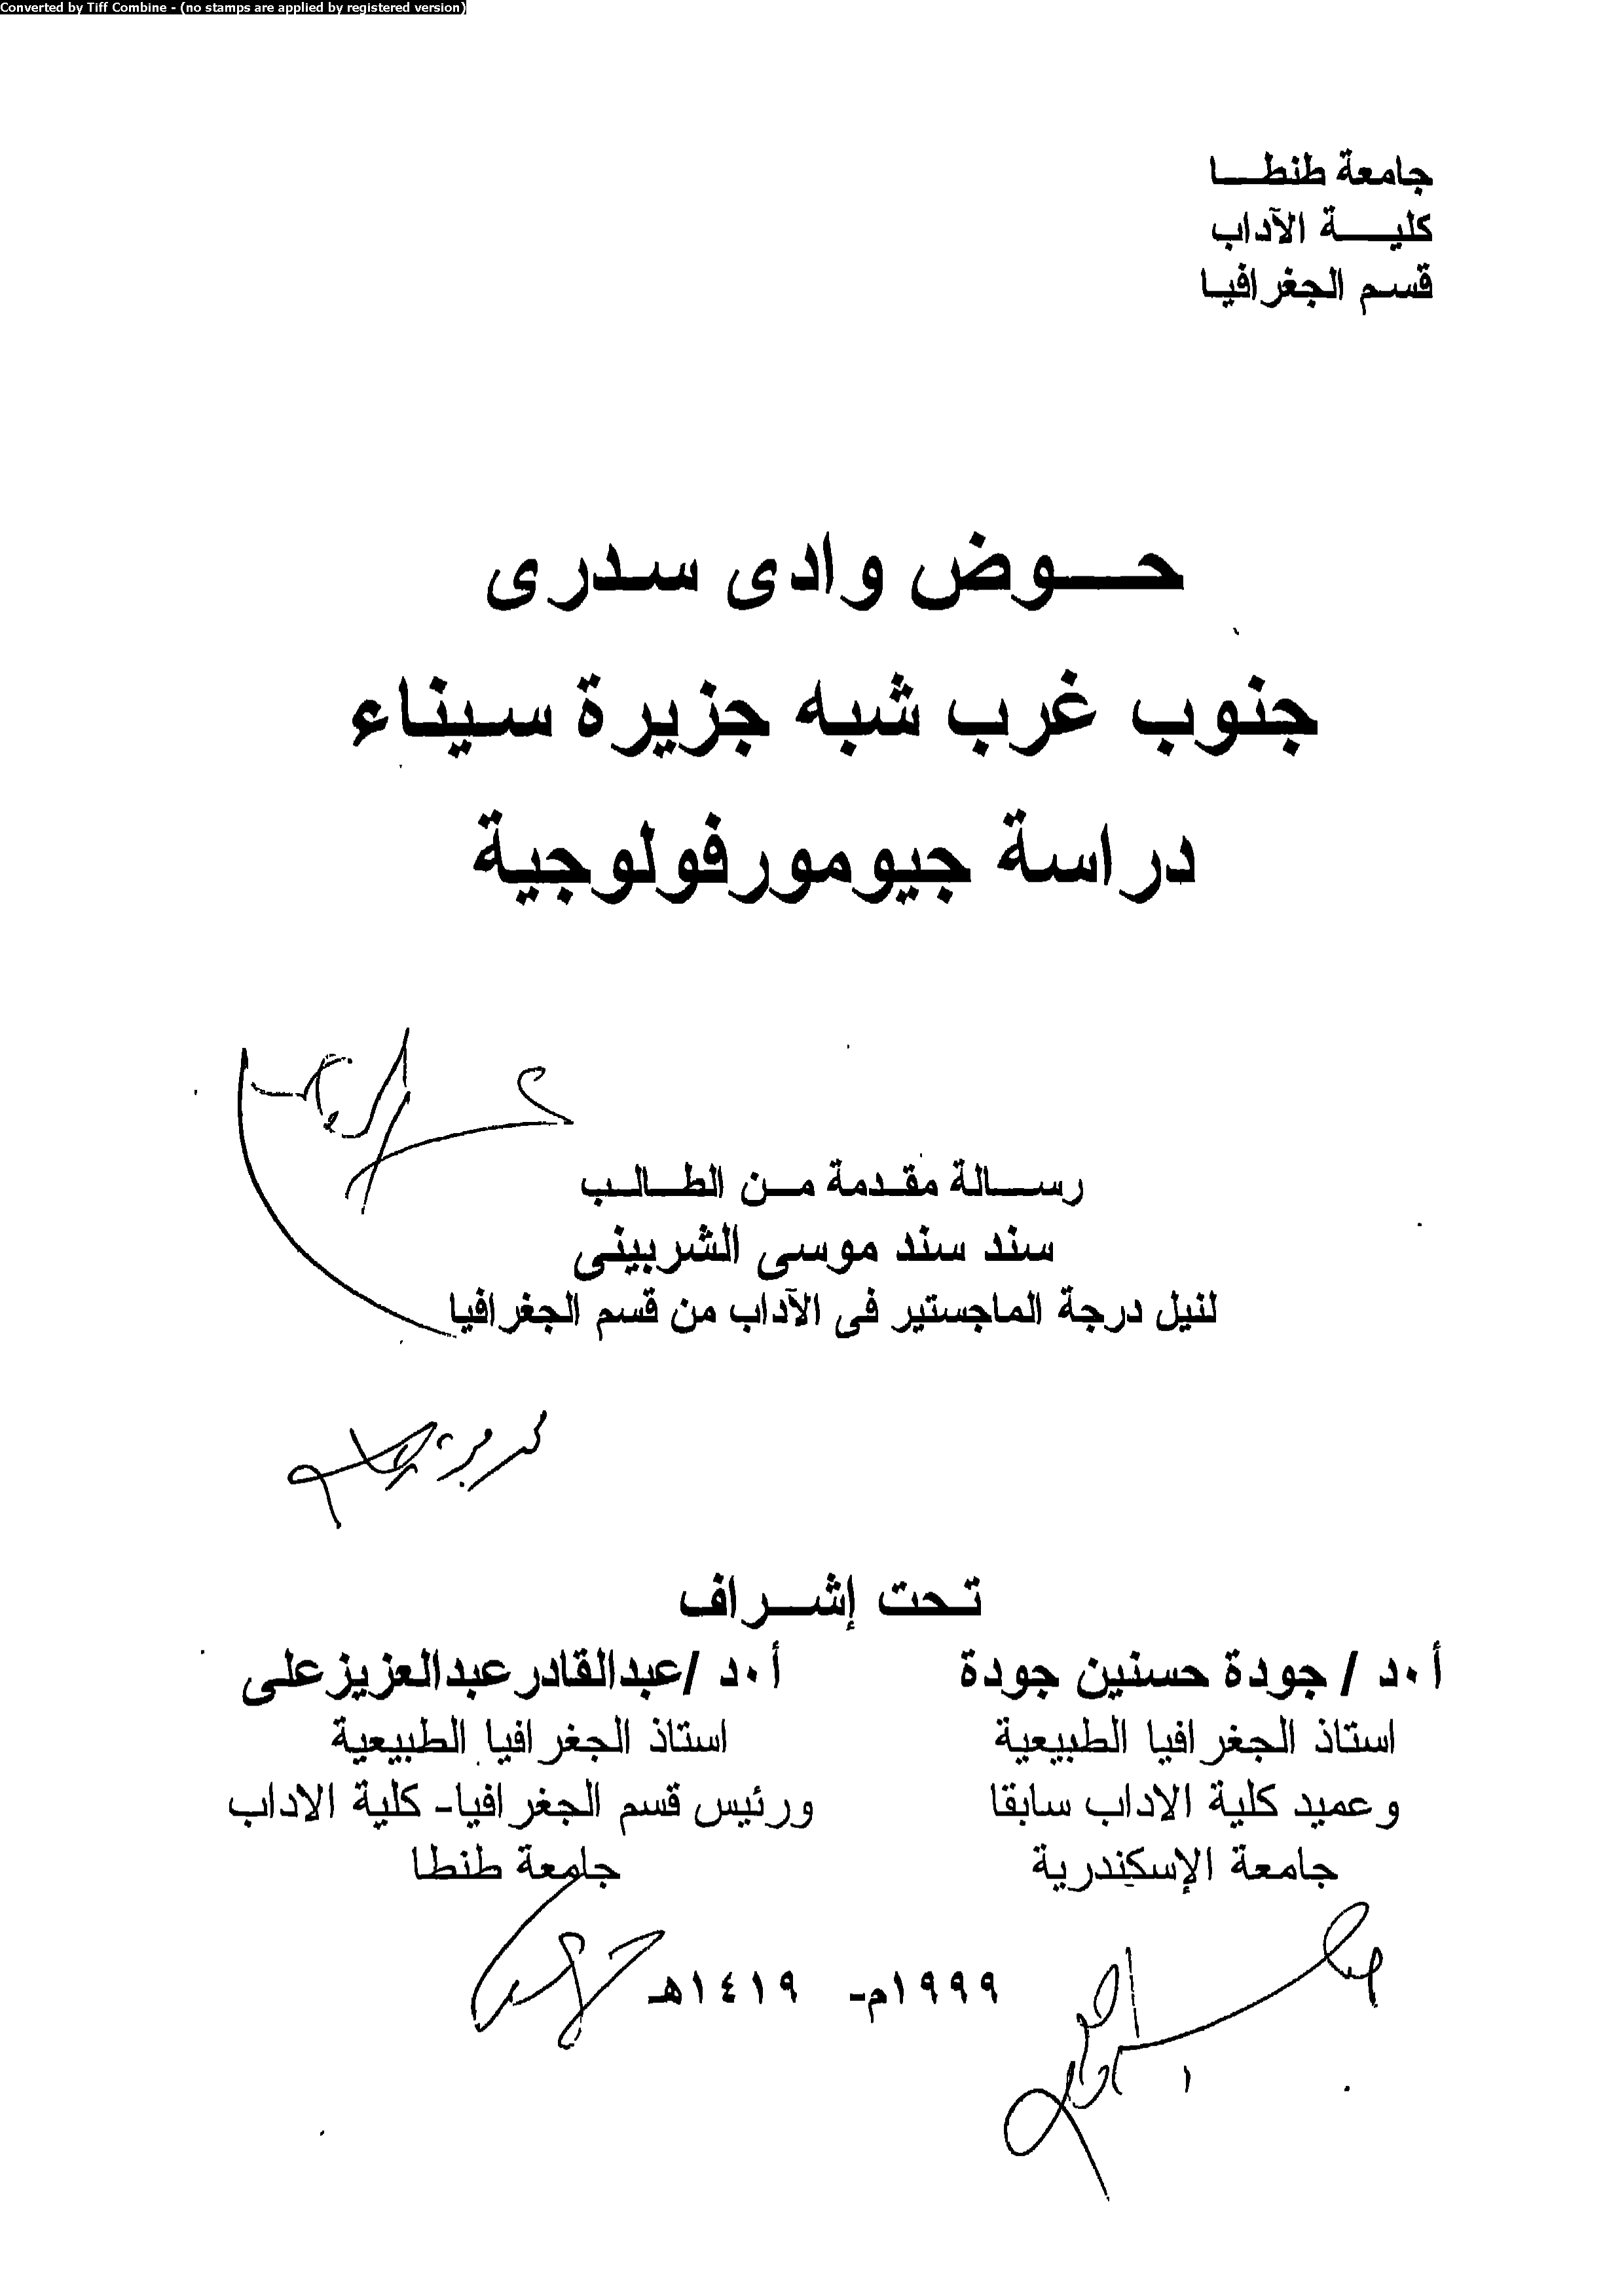 Converted by Tiff Combine - (no stamps are applied by registered version)
جامعة طنطا
كلية الآداب
قسم الجغرافيا
حوض وادى سدرى
جنوب غرب شبه جزيرة سيناء
دراسة جيومورفولوجية
رسالة مقدمة من الطالب
سند سند موسى الشربينى
لنيل درجة الماجستير فى الآداب من قسم الجغرافيا
تحت إشراف
أ٠د / جودة حسنين جودة
استاذ الجغرافيا الطبيعية
وعميد كلية الاداب سابقا
جامعة الإسكندرية
أ٠د /عبدالقادرعبدالعزيزعلى
استاذ الجغرافيا الطبيعية
ورئيس قسم الجغرافيا- كلية الاداب
جامعة طنطا
١٩٩٩م- ١٤١٩هـ